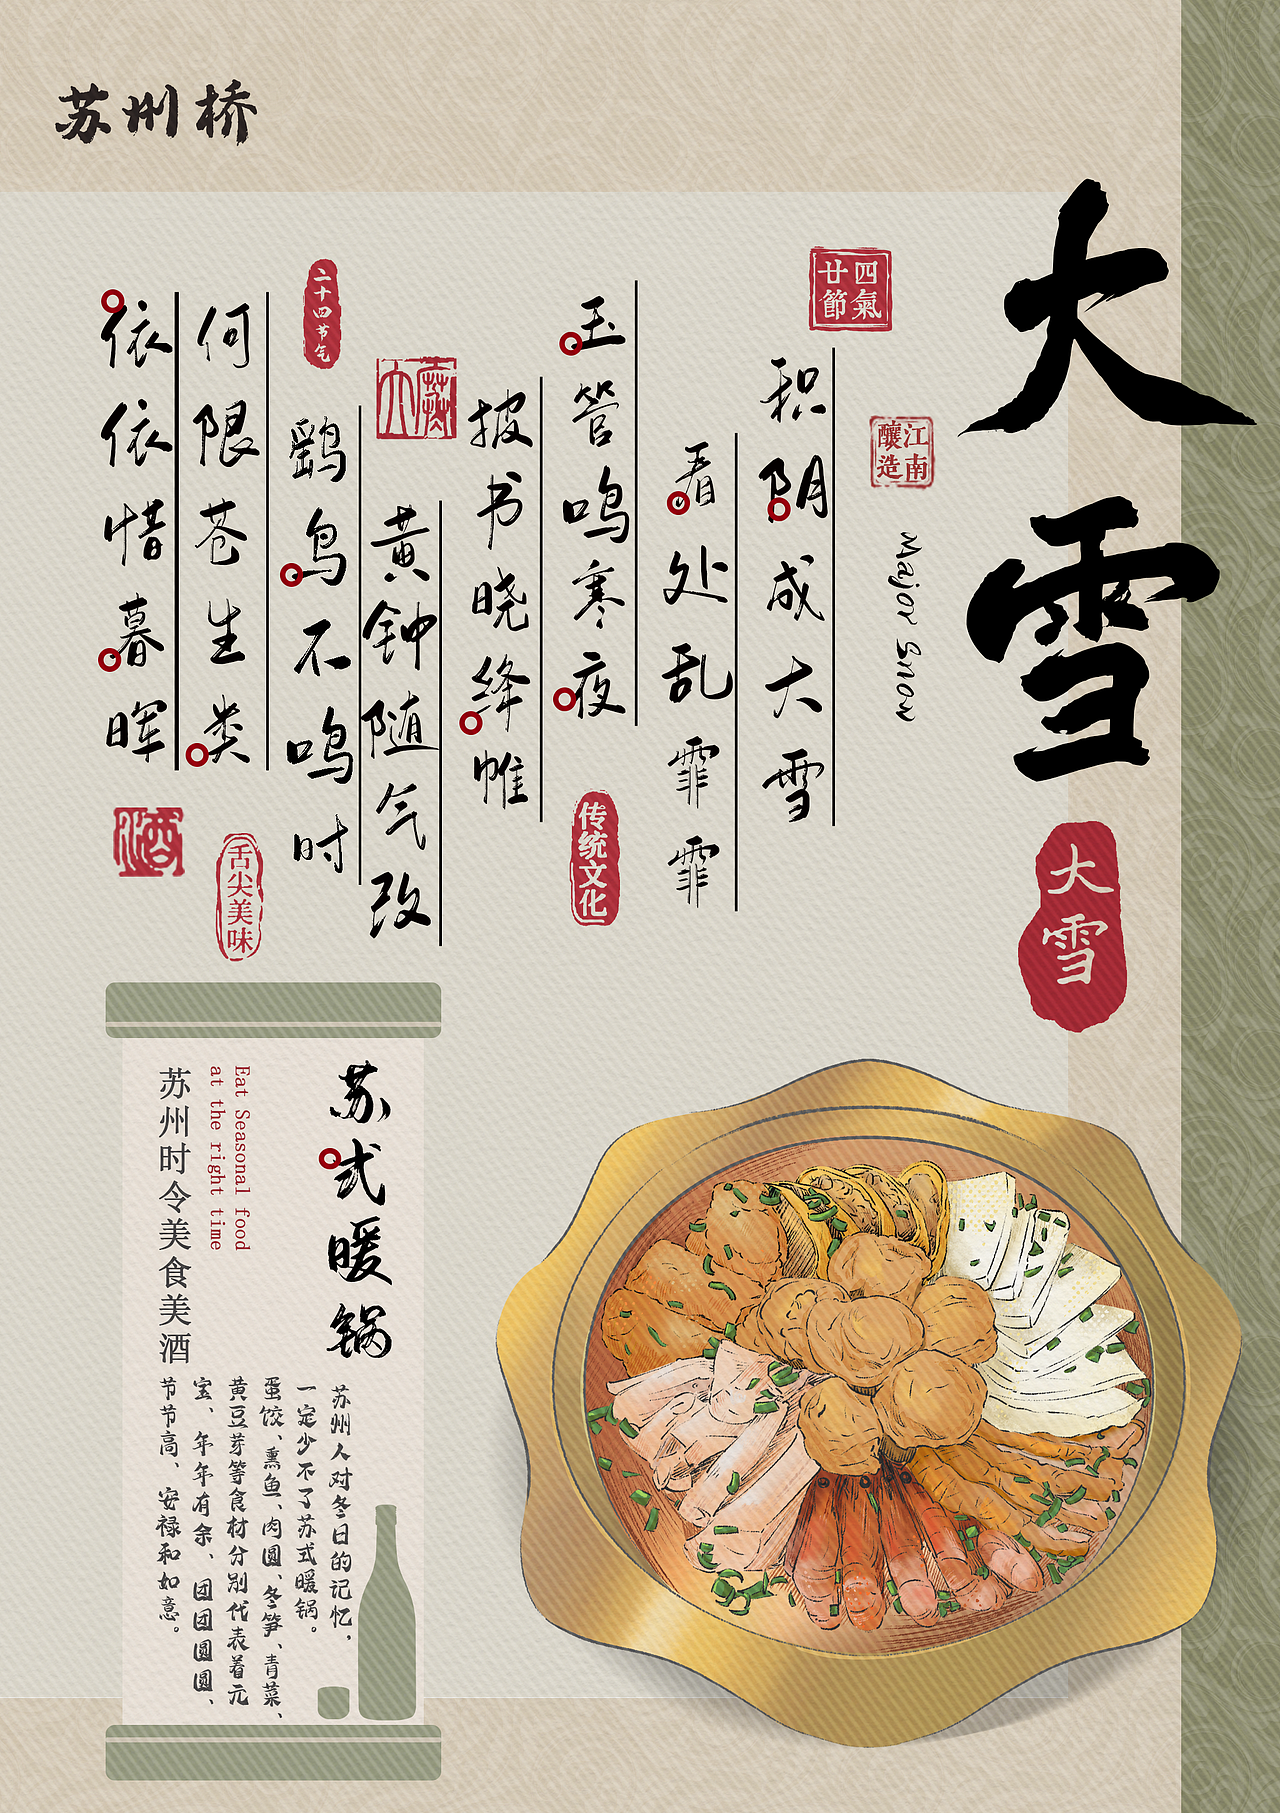 苏州桥
大雪
大雪
Major Snow
四氣
廿節
江南
釀造
积阴成大雪
看处乱霏霏
玉管鸣寒夜
传统文化
披书晓绛帷
黄钟随气改
鹖鸟不鸣时
二十四节气
何限苍生类
依依惜暮晖
舌尖美味
酒
苏式暖锅
Eat Seasonal food
at the right time
苏州时令美食美酒
苏州人对冬日的记忆,
一定少不了苏式暖锅。
蛋饺、熏鱼、肉圆、冬笋、青菜、
黄豆芽等食材分别代表着元
宝、年年有余、团团圆圆、
节节高、安禄和如意。